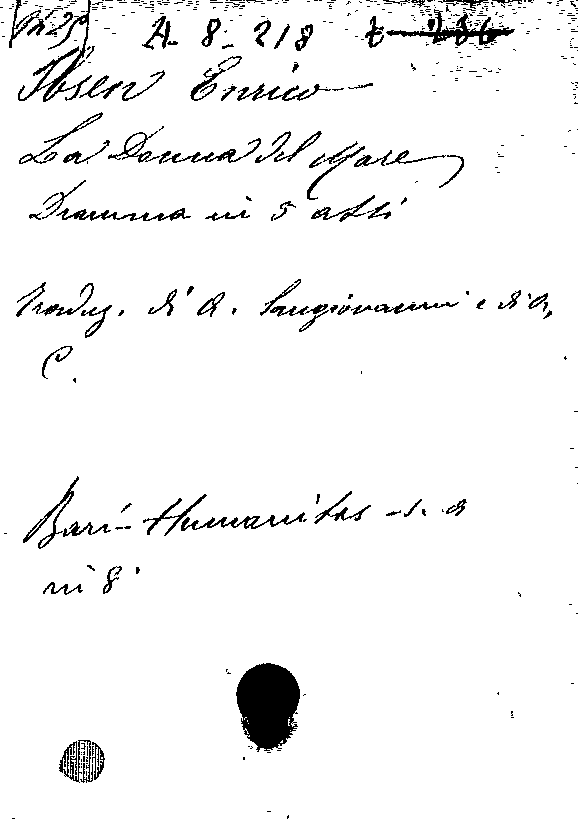 A. 8. 218
Ibsen Enrico
La Donna del Mare
Dramma in 5 atti
Traduz. di A. Sangiovanni e di A.
C.
Bari - Humanitas - s. a
in 8°